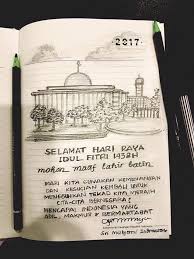 2017
SELAMAT HARI RAYA
IDUL FITRI 1438H
mohon maaf lahir batin
MARI KITA GUNAKAN KEMENANGAN
DAN KESUCIAN KEMBALI UNTUK
MENERUSKAN TEKAD KITA MERAIH
CITA-CITA BERNEGARA!
MENCAPAI INDONESIA YANG
ADIL MAKMUR & BERMARTABAT
Sri Mulyani